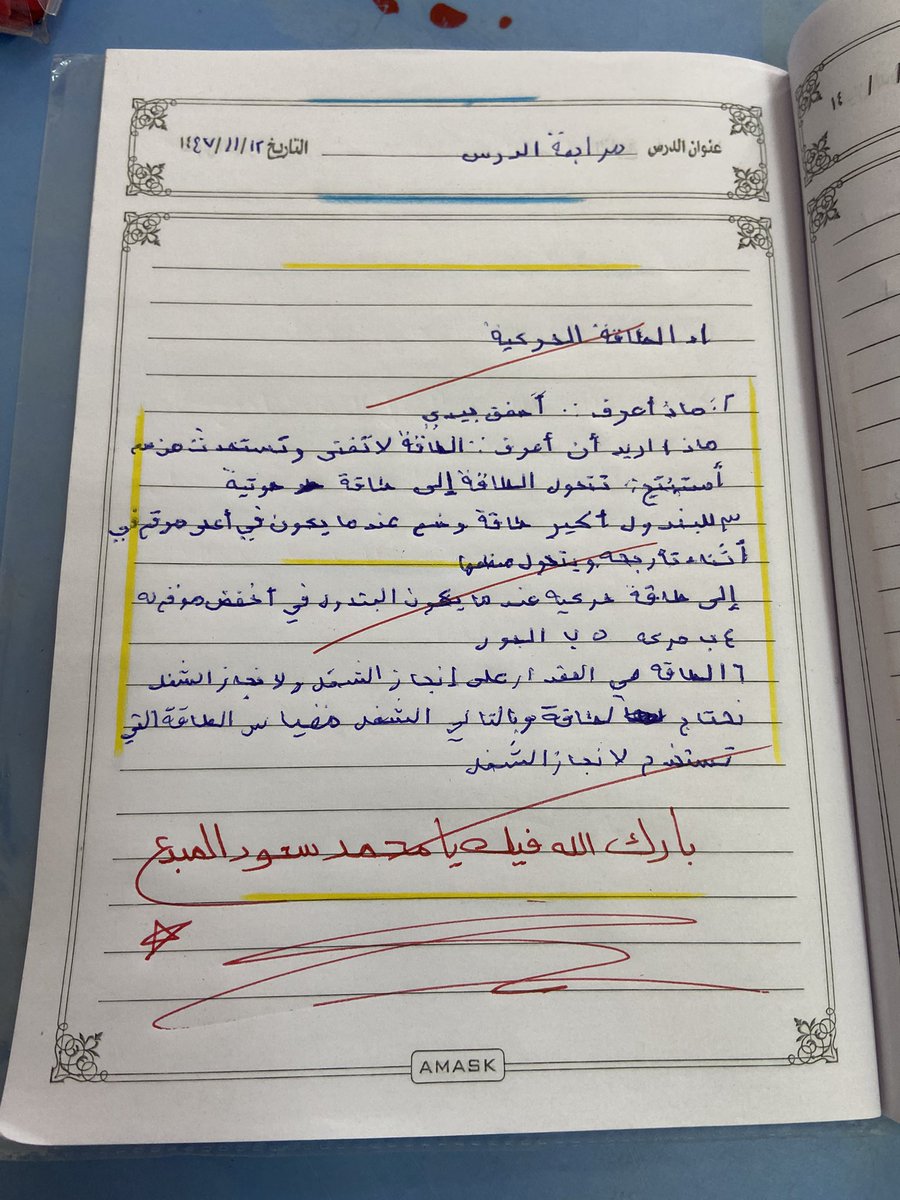 عنوان الدرس مراجعة الدرس التاريخ ١٤٤٧/١١/١٢
١ـ الطاقة الحركية
٢: ماذا أعرف :. أصفق بيدي
ماذا اريد أن أعرف :. الطاقة لا تفنى وتستحدث من
أستنتج: تتحول الطاقة إلى طاقة صوتية
٣ للبندول أكبر طاقة وضع عندما يكون في أعلى موقع في
أثناء تأرجحه ويتحول معظمها
إلى طاقة حركية عندما يكون البندول في أخفض موقع له
٤ ب حركه ٥ ب الجول
٦ الطاقة هي المقدار على إنجاز الشغل ولا نجاز الشغل
نحتاج لطاقة وبالتالي الشغل مقياس الطاقة التي
تستخدم لا نجاز الشغل
بارك الله فيك يا محمد سعود المبدع
AMASK
١٤ / /